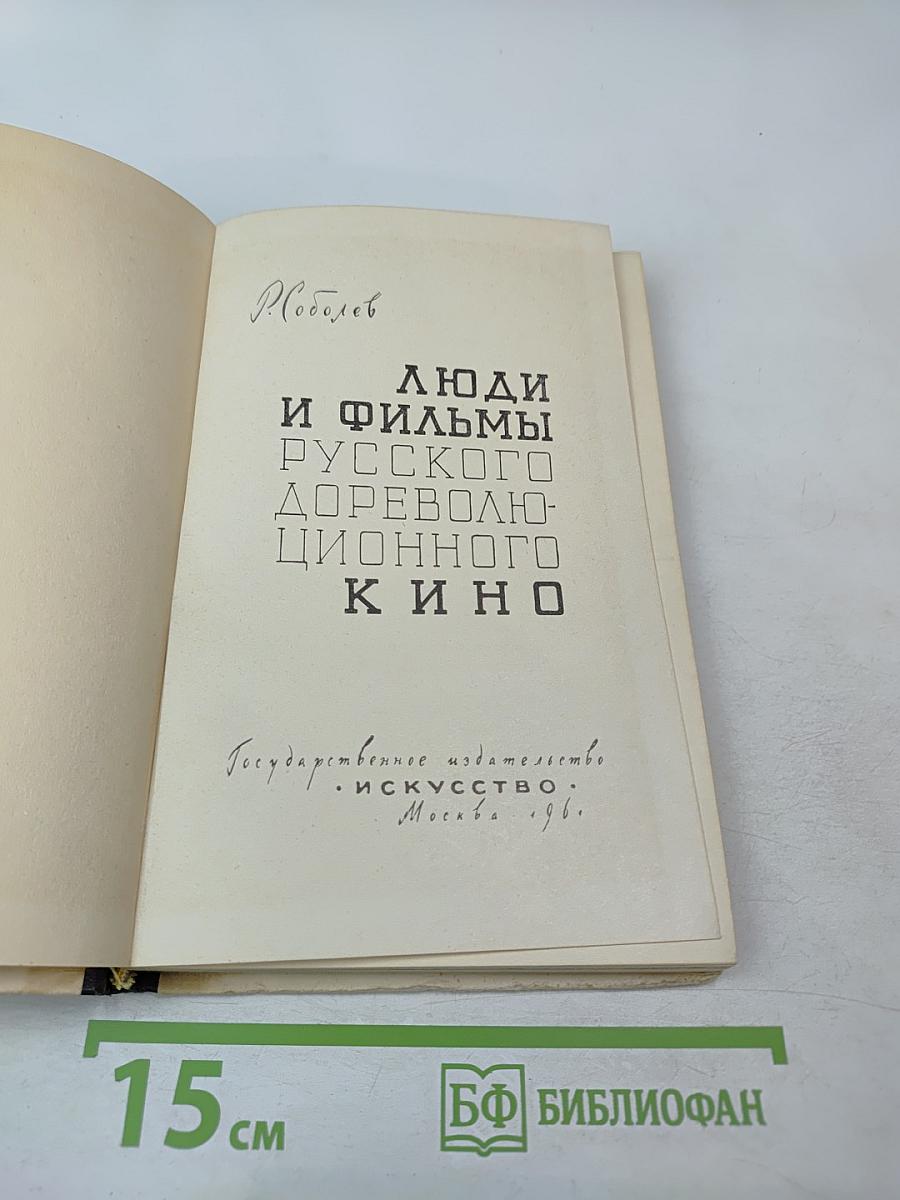 Р. Соболев
ЛЮДИ
И ФИЛЬМЫ
РУССКОГО
ДОРЕВОЛЮ-
ЦИОННОГО
КИНО
Государственное издательство
• ИСКУССТВО •
Москва 1961
15 см
БФ БИБЛИОФАН